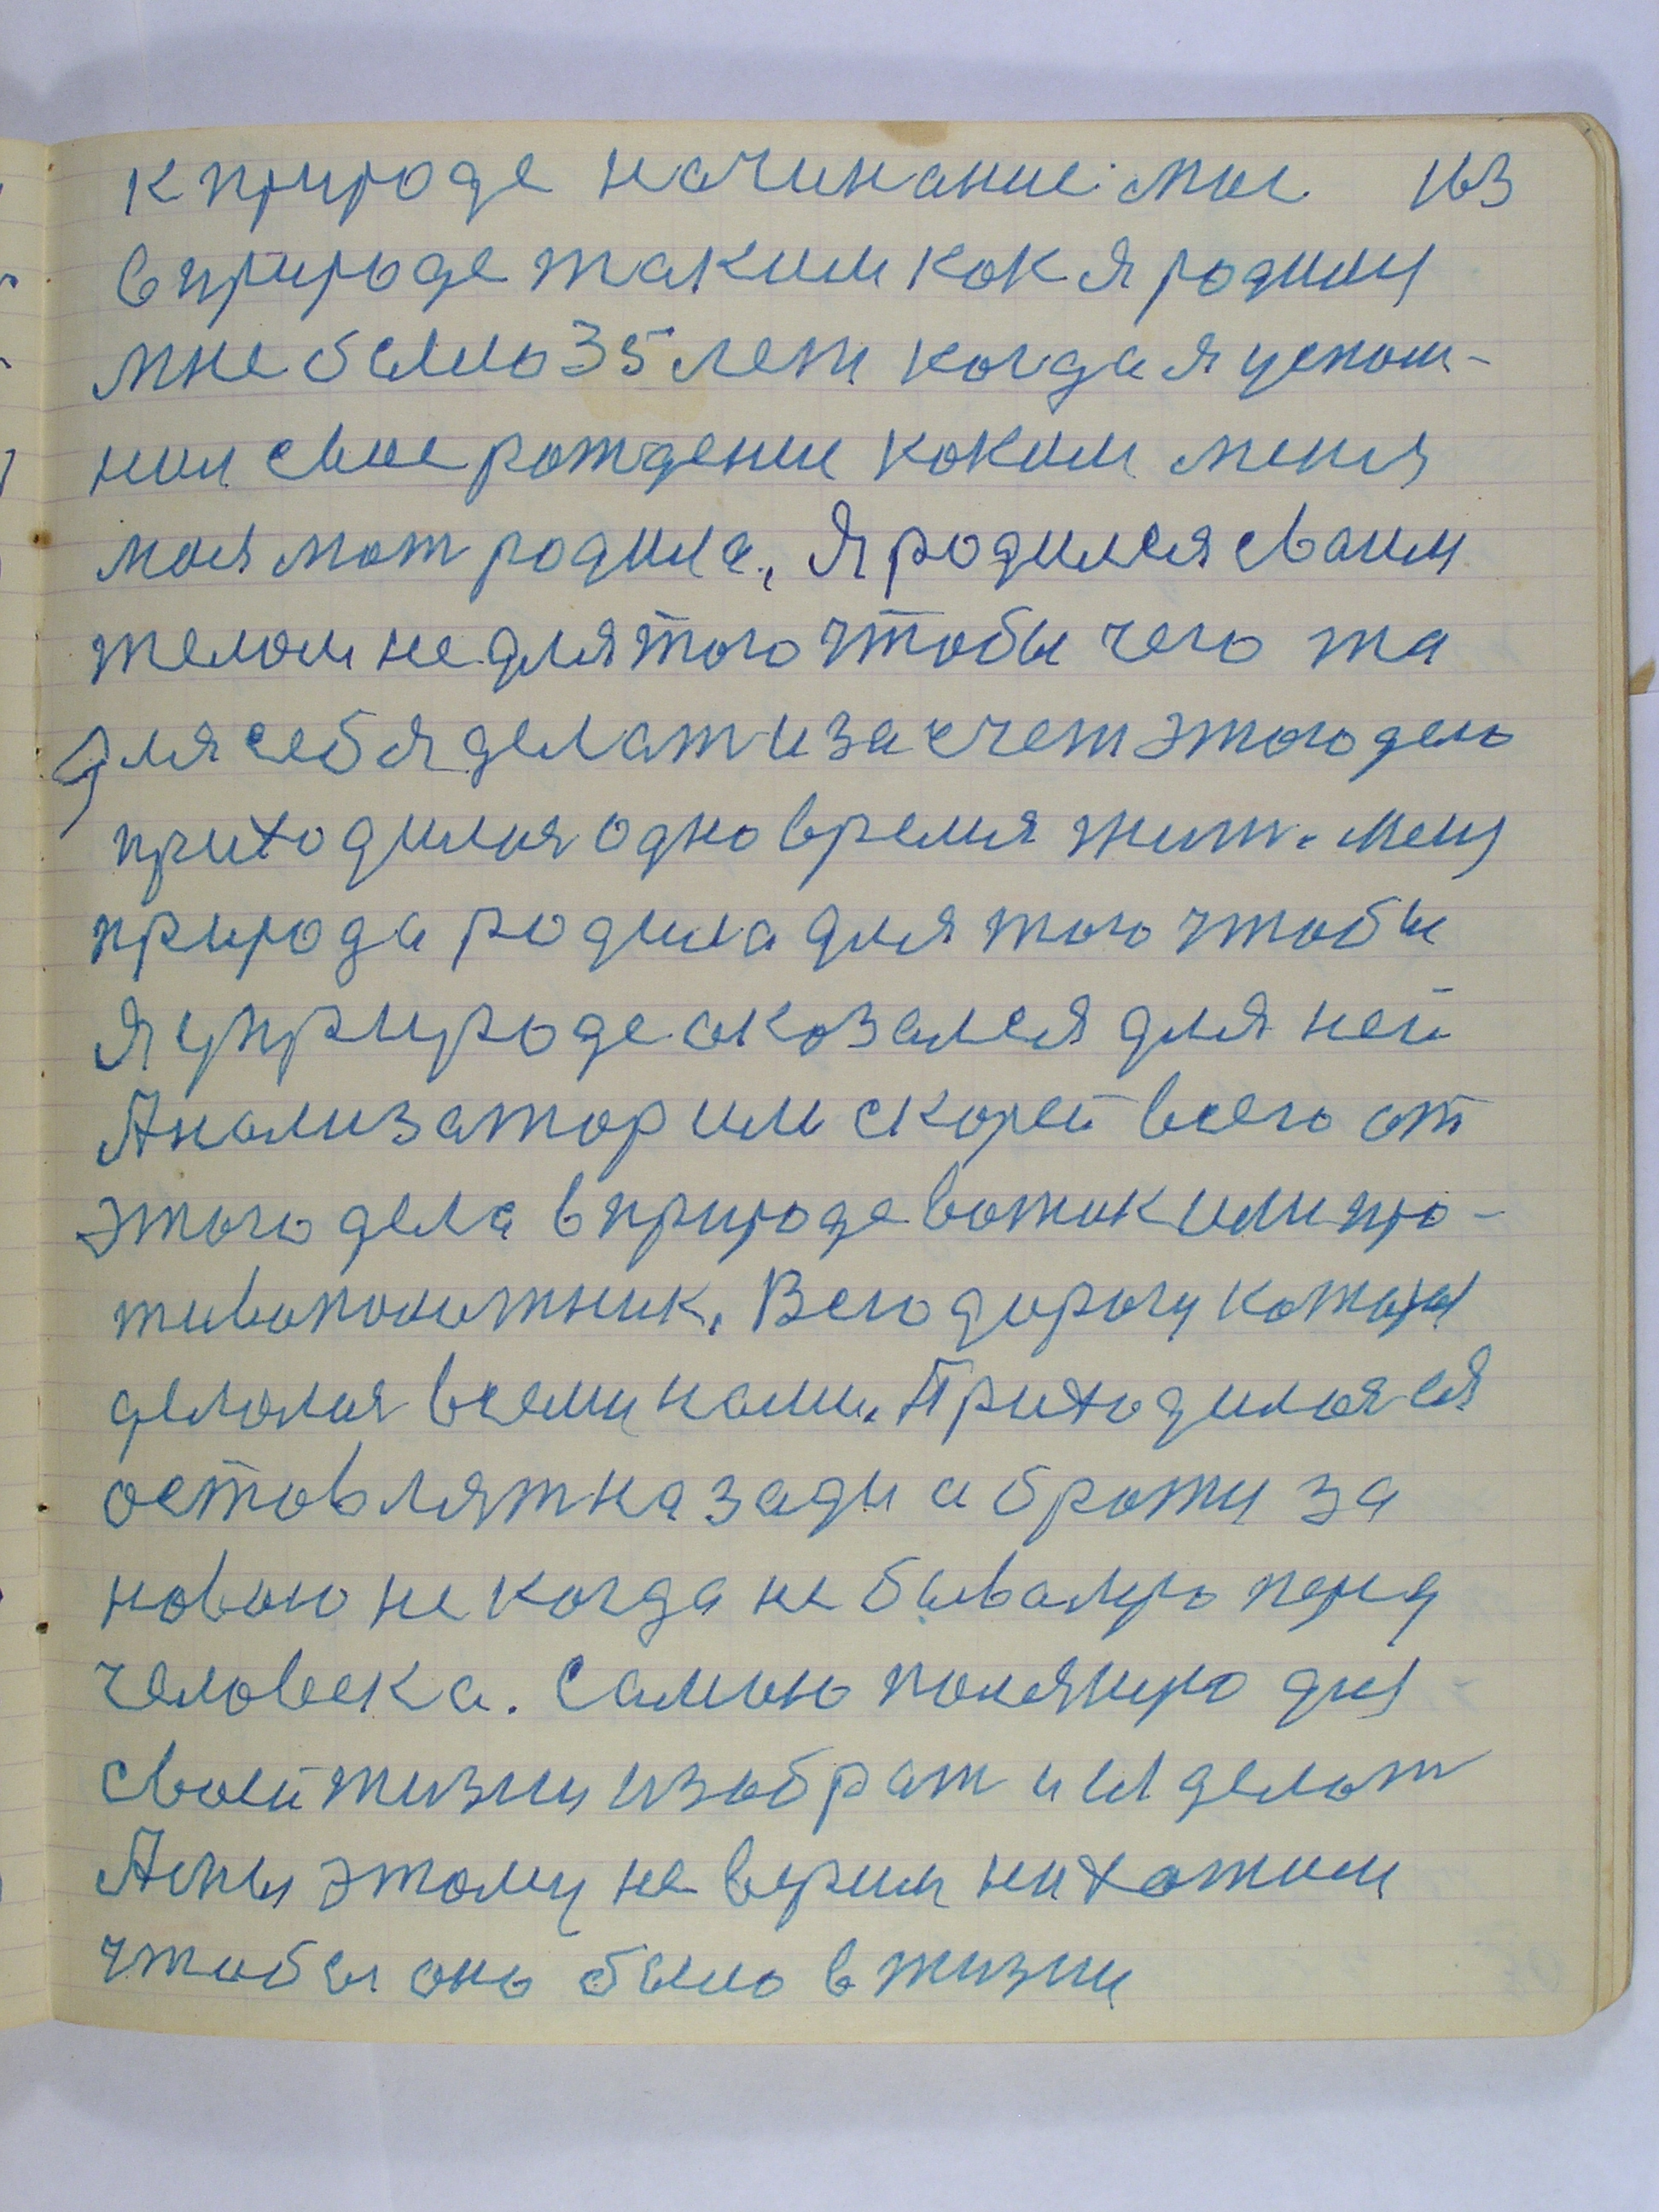 к природе начинание мое 163
в природе таким как я родину
мне было 35 лет когда я успом-
нил свое рождение каким меня
моя мат родила. Я родился сваим
телом не для того чтобы чего та
для себя делат и за счет этого дело
приходилоя одно время жит. Меня
природа родила для того чтобы
Я у природе оказался для ней
Анализатор или скорей всего от
этого дела в природе
тивоположник. Всю дорогу
делалия всему нами. Приходилояся
оставлят на зади а брати за
новою не когда не бывалую
человека. Самую для
своей жизни изобрат и ея делат
А мы этому не верим ни хотим
чтобы оно было в жизни